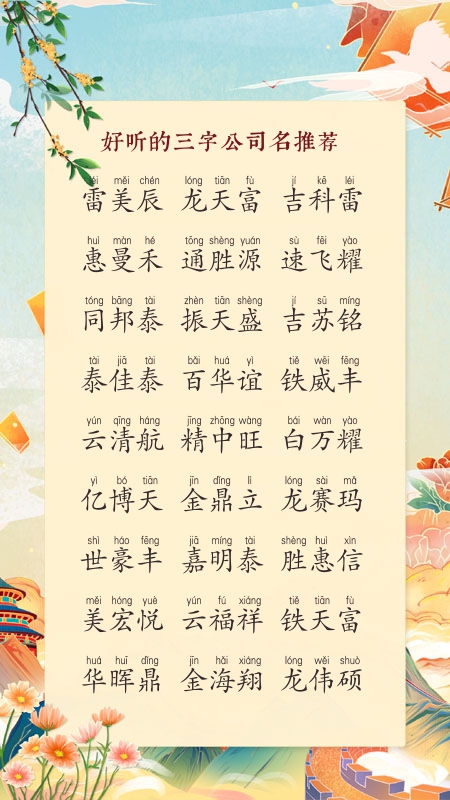 好听的三字公司名推荐
léi měi chén lóng tiān fù jí kē léi
雷美辰 龙天富 吉科雷
huì màn hé tōng shèng yuán sù fēi yào
惠曼禾 通胜源 速飞耀
tóng bāng tài zhèn tiān shèng jí sū míng
同邦泰 振天盛 吉苏铭
tài jiā tài bǎi huá yì tiě wēi fēng
泰佳泰 百华谊 铁威丰
yún qīng háng jīng zhōng wàng bái wàn yào
云清航 精中旺 白万耀
yì bó tiān jīn dǐng lì lóng sài mǎ
亿博天 金鼎立 龙赛玛
shì háo fēng jiā míng tài shèng huì xìn
世豪丰 嘉明泰 胜惠信
měi hóng yuè yún fú xiáng tiě tiān fù
美宏悦 云福祥 铁天富
huá huī dǐng jīn hǎi xiáng lóng wěi shuò
华晖鼎 金海翔 龙伟硕